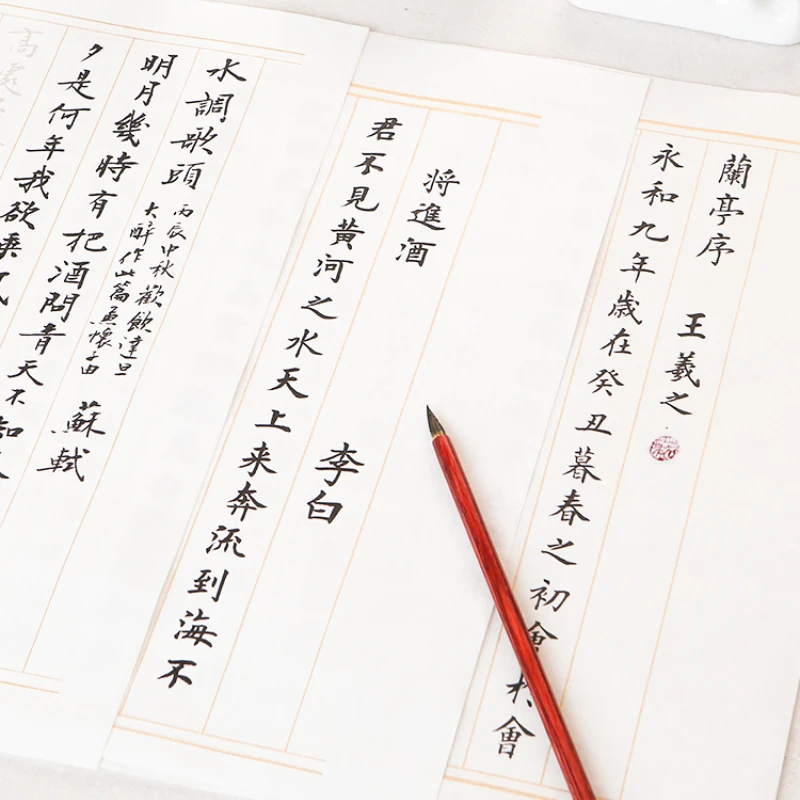 蘭亭序 王羲之
永和九年歲在癸丑暮春之初會於會
将進酒 李白
君不見黃河之水天上来奔流到海不
水調歌頭
丙辰中秋歡飲達旦
大醉作此篇兼懷子由
蘇軾
明月幾時有把酒問青天不知
夕是何年我欲乘風
高處